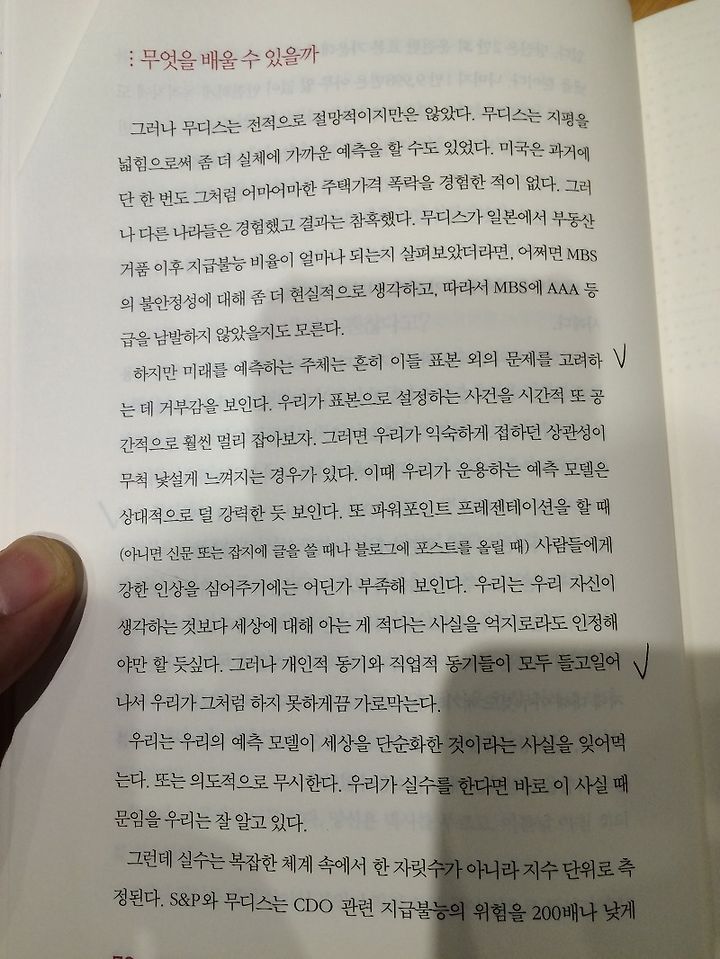 무엇을 배울 수 있을까
그러나 무디스는 전적으로 절망적이지만은 않았다. 무디스는 지평을
넓힘으로써 좀 더 실체에 가까운 예측을 할 수도 있었다. 미국은 과거에
단 한 번도 그처럼 어마어마한 주택가격 폭락을 경험한 적이 없다. 그러
나 다른 나라들은 경험했고 결과는 참혹했다. 무디스가 일본에서 부동산
거품 이후 지급불능 비율이 얼마나 되는지 살펴보았더라면, 어쩌면 MBS
의 불안정성에 대해 좀 더 현실적으로 생각하고, 따라서 MBS에 AAA 등
급을 남발하지 않았을지도 모른다.
하지만 미래를 예측하는 주체는 흔히 이들 표본 외의 문제를 고려하
는 데 거부감을 보인다. 우리가 표본으로 설정하는 사건을 시간적 또 공
간적으로 훨씬 멀리 잡아보자. 그러면 우리가 익숙하게 접하던 상관성이
무척 낯설게 느껴지는 경우가 있다. 이때 우리가 운용하는 예측 모델은
상대적으로 덜 강력한 듯 보인다. 또 파워포인트 프레젠테이션을 할 때
(아니면 신문 또는 잡지에 글을 쓸 때나 블로그에 포스트를 올릴 때) 사람들에게
강한 인상을 심어주기에는 어딘가 부족해 보인다. 우리는 우리 자신이
생각하는 것보다 세상에 대해 아는 게 적다는 사실을 억지로라도 인정해
야만 할 듯싶다. 그러나 개인적 동기와 직업적 동기들이 모두 들고일어
나서 우리가 그처럼 하지 못하게끔 가로막는다.
우리는 우리의 예측 모델이 세상을 단순화한 것이라는 사실을 잊어먹
는다. 또는 의도적으로 무시한다. 우리가 실수를 한다면 바로 이 사실 때
문임을 우리는 잘 알고 있다.
그런데 실수는 복잡한 체계 속에서 한 자릿수가 아니라 지수 단위로 측
정된다. S&P와 무디스는 CDO 관련 지급불능의 위험을 200배나 낮게